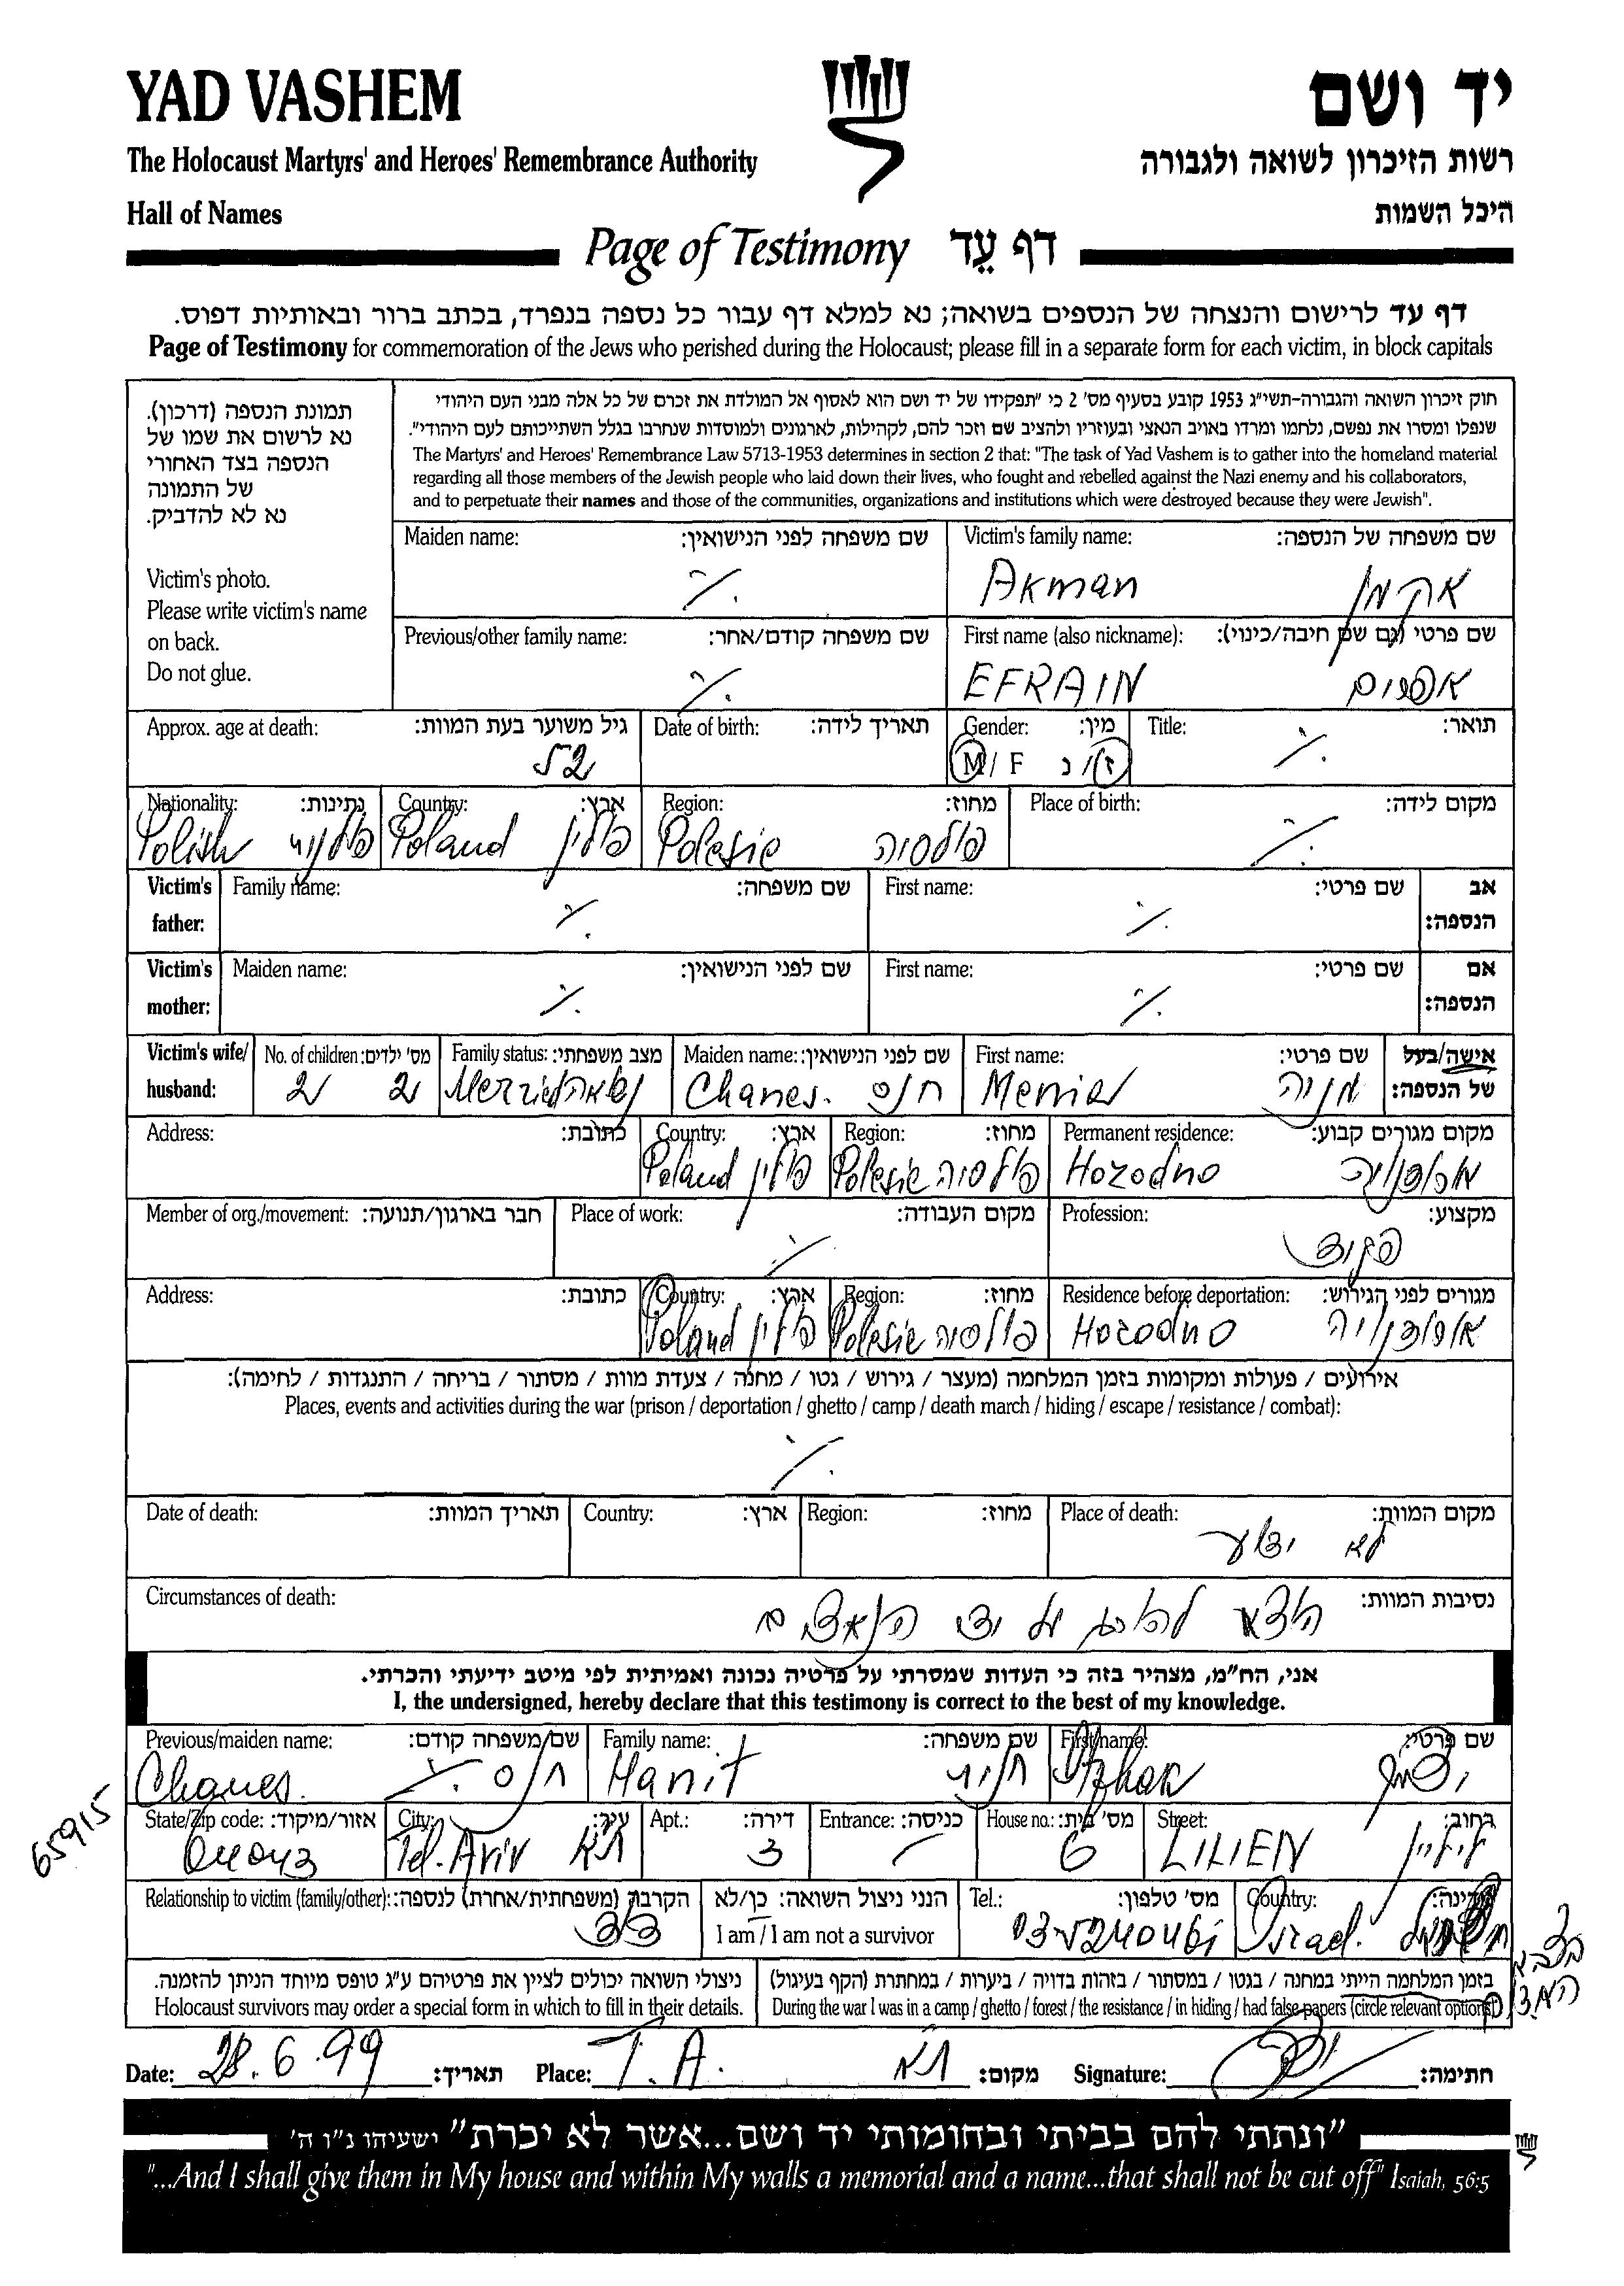 YAD VASHEM
יד ושם
The Holocaust Martyrs' and Heroes' Remembrance Authority
רשות הזיכרון לשואה ולגבורה
Hall of Names
היכל השמות
Page of Testimony דף עֵד
דף עד לרישום והנצחה של הנספים בשואה; נא למלא דף עבור כל נספה בנפרד, בכתב ברור ובאותיות דפוס.
Page of Testimony for commemoration of the Jews who perished during the Holocaust; please fill in a separate form for each victim, in block capitals
תמונת הנספה (דרכון).
נא לרשום את שמו של
הנספה בצד האחורי
של התמונה
נא לא להדביק.
Victim's photo.
Please write victim's name
on back.
Do not glue.
חוק זיכרון השואה והגבורה-תשי"ג 1953 קובע בסעיף מס' 2 כי "תפקידו של יד ושם הוא לאסוף אל המולדת את זכרם של כל אלה מבני העם היהודי
שנפלו ומסרו את נפשם, נלחמו ומרדו באויב הנאצי ובעוזריו ולהציב שם וזכר להם, לקהילות, לארגונים ולמוסדות שנחרבו בגלל השתייכותם לעם היהודי".
The Martyrs' and Heroes' Remembrance Law 5713-1953 determines in section 2 that: "The task of Yad Vashem is to gather into the homeland material
regarding all those members of the Jewish people who laid down their lives, who fought and rebelled against the Nazi enemy and his collaborators,
and to perpetuate their names and those of the communities, organizations and institutions which were destroyed because they were Jewish".
Maiden name: שם משפחה לפני הנישואין:
Victim's family name: שם משפחה של הנספה:
Akman אקמן
Previous/other family name: שם משפחה קודם/אחר:
First name (also nickname): שם פרטי (גם שם חיבה/כינוי):
EFRAIN אפרים
Approx. age at death: גיל משוער בעת המוות: Date of birth: תאריך לידה: Gender: מין: Title: תואר:
52 M / F ז/נ
Nationality: נתינות: Country: ארץ: Region: מחוז: Place of birth: מקום לידה:
Polish פולני Poland פולין Polesie פולסיה
Victim's father: Family name: שם משפחה: First name: שם פרטי: אב הנספה:
Victim's mother: Maiden name: שם לפני הנישואין: First name: שם פרטי: אם הנספה:
Victim's wife/ husband: No. of children: מס' ילדים: Family status: מצב משפחתי: Maiden name: שם לפני הנישואין: First name: שם פרטי: אישה/בעל של הנספה:
2 2 Merried Chanes. חנס Menia מניה
Address: כתובת: Country: ארץ: Region: מחוז: Permanent residence: מקום מגורים קבוע:
Poland פולין Polesie פולסיה Horodno
Member of org./movement: חבר בארגון/תנועה: Place of work: מקום העבודה: Profession: מקצוע:
פקיד
Address: כתובת: Country: ארץ: Region: מחוז: Residence before deportation: מגורים לפני הגירוש:
Poland פולין Polesie פולסיה Horodno
אירועים / פעולות ומקומות בזמן המלחמה (מעצר / גירוש / גטו / מחנה / צעדת מוות / מסתור / בריחה / התנגדות / לחימה):
Places, events and activities during the war (prison / deportation / ghetto / camp / death march / hiding / escape / resistance / combat):
Date of death: תאריך המוות: Country: ארץ: Region: מחוז: Place of death: מקום המוות:
לא ידוע
Circumstances of death: נסיבות המוות:
הוצא להורג על ידי הנאצים
אני, הח"מ, מצהיר בזה כי העדות שמסרתי על פרטיה נכונה ואמיתית לפי מיטב ידיעתי והכרתי.
I, the undersigned, hereby declare that this testimony is correct to the best of my knowledge.
Previous/maiden name: שם משפחה קודם: Family name: שם משפחה: First name: שם פרטי:
Chanes. חנס Hanit חנית Itzhak יצחק
State/Zip code: אזור/מיקוד: City: עיר: Apt.: דירה: Entrance: כניסה: House no.: מס' בית: Street: רחוב:
65915 Tel.Aviv תא 3 6 LILIEN ליליין
Relationship to victim (family/other): הקרבה (משפחתית/אחרת) לנספה: הנני ניצול השואה: כן/לא Tel.: מס' טלפון: Country: מדינה:
דוד I am / I am not a survivor Israel.
ניצולי השואה יכולים לציין את פרטיהם ע"ג טופס מיוחד הניתן להזמנה.
Holocaust survivors may order a special form in which to fill in their details.
בזמן המלחמה הייתי במחנה / בגטו / במסתור / בזהות בדויה / ביערות / במחתרת (הקף בעיגול)
During the war I was in a camp / ghetto / forest / the resistance / in hiding / had false papers (circle relevant option)
Date: 28.6.99 תאריך: Place: T.A. תא מקום: Signature: חתימה:
"ונתתי להם בביתי ובחומותי יד ושם...אשר לא יכרת" ישעיהו נ"ו ה'
"...And I shall give them in My house and within My walls a memorial and a name...that shall not be cut off" Isaiah, 56:5